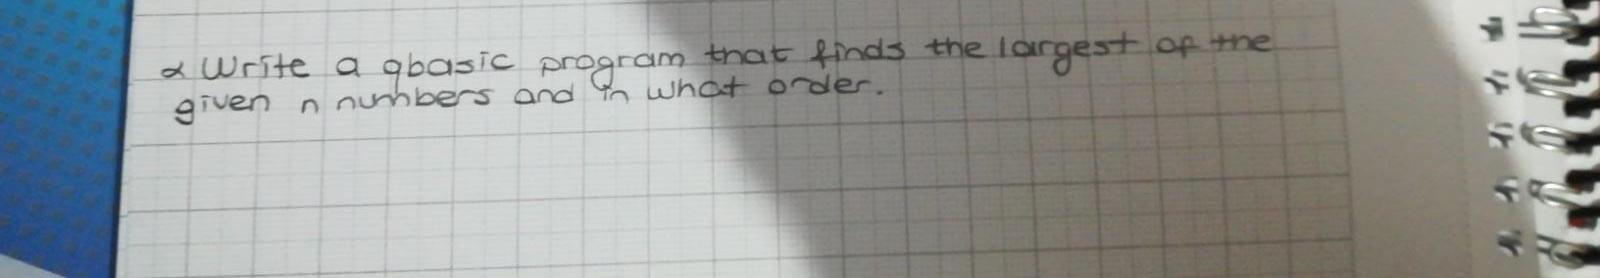 α Write a qbasic program that finds the largest of the
given n numbers and in what order.